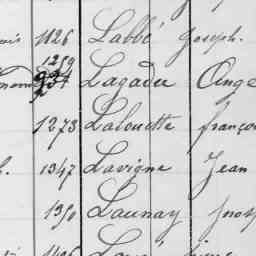 1126 Labbé Joseph.
1259
934 Lagadec Ange
1273 Lalouette françoi
1347 Lavigne Jean
1350 Launay